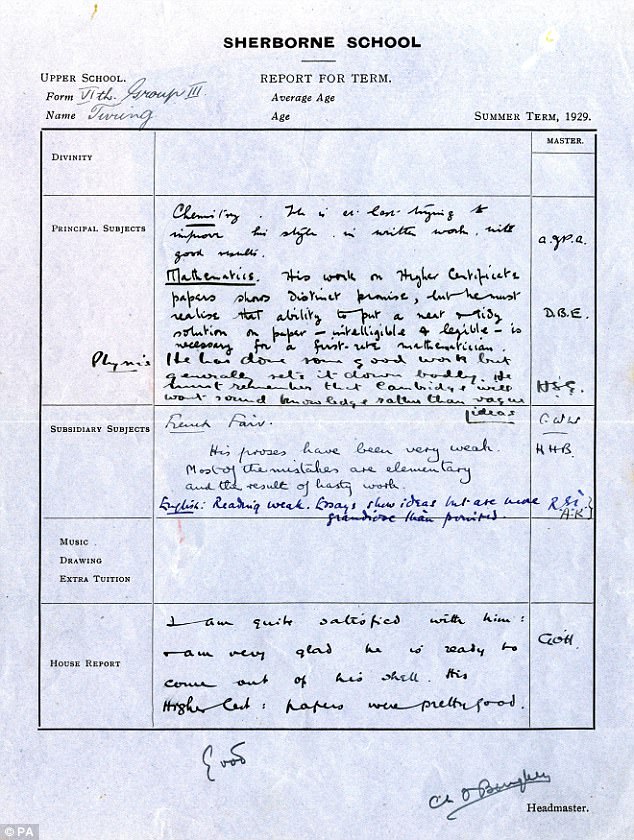 SHERBORNE SCHOOL
UPPER SCHOOL.
REPORT FOR TERM.
Form VIth. Group III
Average Age
Name Turing
Age
SUMMER TERM, 1929.
MASTER.
DIVINITY
PRINCIPAL SUBJECTS
Chemistry. He is at last trying to
improve his style in written work. with
good results.
a.J.P.a.
Mathematics. His work on Higher Certificate
papers shows distinct promise, but he must
realise that ability to put a neat & tidy
solution on paper – intelligible & legible – is
necessary for a first-rate mathematician.
D.B.E.
Physics He has done some good work but
generally sets it down badly. He
must remember that Cambridge will
want sound knowledge rather than vague
ideas
H.S.G.
SUBSIDIARY SUBJECTS
French Fair.
His proses have been very weak.
Most of the mistakes are elementary
and the result of hasty work.
H.H.B.
English: Reading weak. Essays show ideas but are more
grandiose than
A.K.
MUSIC
DRAWING
EXTRA TUITION
HOUSE REPORT
I am quite satisfied with him:
I am very glad he is ready to
come out of his shell. His
Higher Cert: papers were pretty good.
GO'H.
Good
Headmaster.
© PA